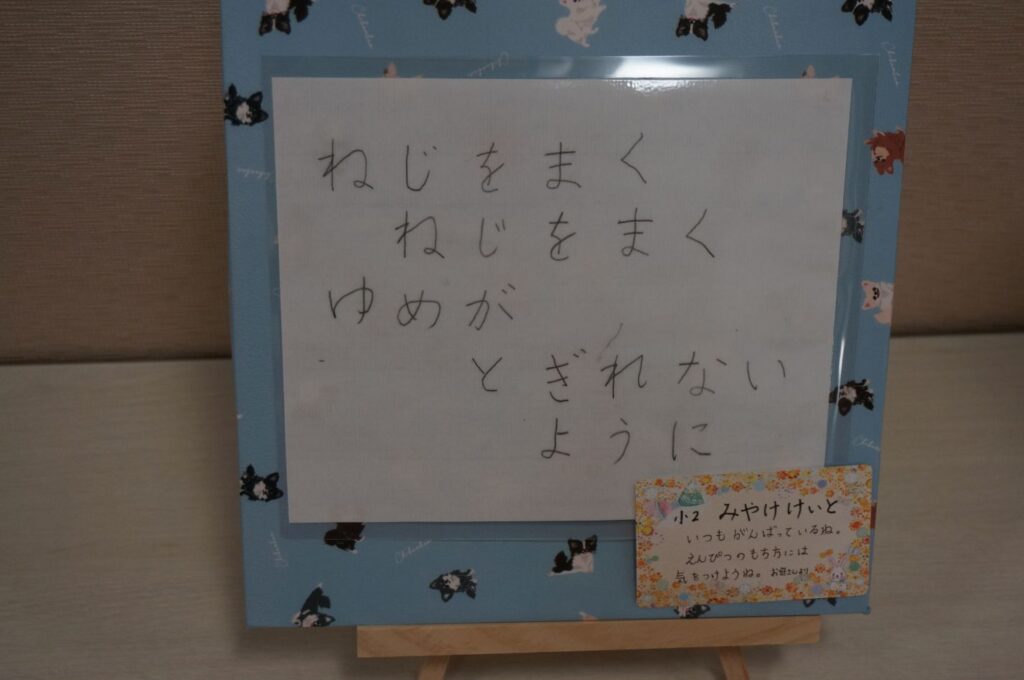 ねじをまく
ねじをまく
ゆめが
とぎれない
ように
小2 みやけけいと
いつもがんばっているね。
えんぴつのもち方には
気をつけようね。お母さんより